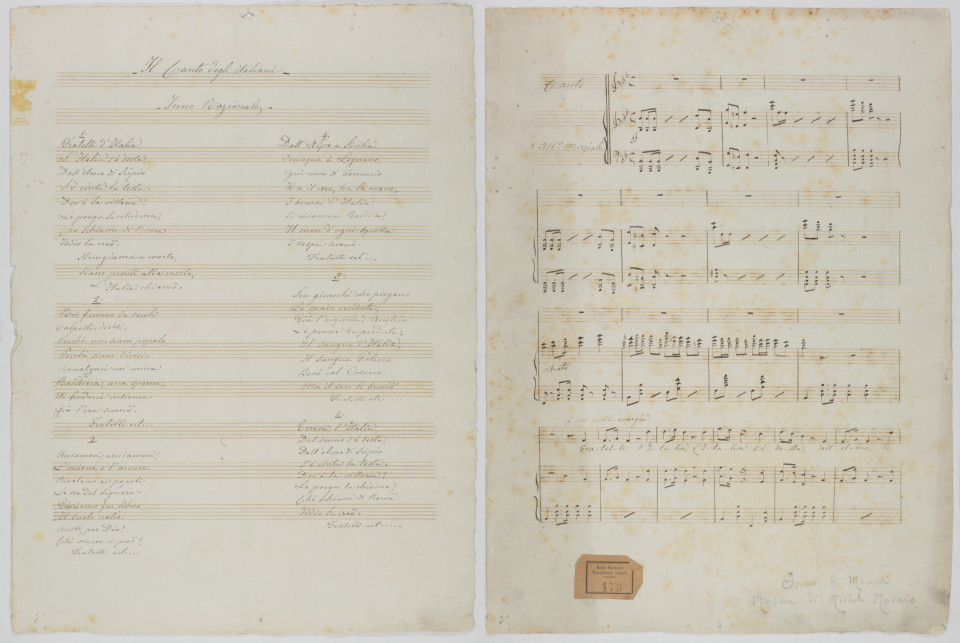 Il Canto degli italiani
Inno Nazionale
1.
Fratelli d'Italia
L'Italia s'è desta,
Dell'elmo di Scipio
S'è cinta la testa.
Dov'è la vittoria?
Le porga la chioma;
Chè schiava di Roma
Iddio la creò.
Stringiamci a coorte,
Siam pronti alla morte,
L'Italia chiamò.
2.
Noi fummo da secoli
Calpesti, derisi,
Perchè non siam popolo,
Perchè siam divisi.
Raccolgaci un'unica
Bandiera, una speme,
Di fonderci insieme
Già l'ora suonò.
Fratelli ect...
3.
Uniamoci, uniamoci,
L'unione e l'amore
Rivelano ai popoli
Le vie del Signore.
Giuriamo far libero
Il suolo natio.
Uniti, per Dio!
Chi vincer ci può?
Fratelli ect...
4.
Dall'Alpe a Sicilia
Dovunque è Legnano,
Ogn'uom di Ferruccio
Ha il core, ha la mano,
I bimbi d'Italia
Si chiaman Balilla;
Il suon d'ogni squilla
I Vespri suonò.
Fratelli ect...
5.
Son giunchi che piegano
Le spade vendute,
Già l'aquila d'Austria
Le penne ha perdute;
Il sangue d'Italia,
Il sangue Polacco
Bevè col Cosacco
Ma il cor le bruciò
Fratelli ect...
6.
Evviva l'Italia,
Dal sonno s'è desta,
Dell'elmo di Scipio
S'è cinta la testa.
Dov'è la vittoria?
Le porga la chioma;
Chè schiava di Roma
Iddio la creò.
Fratelli ect...
Canto
All.º Marziale
Fra-tel-li d'I-ta-lia L'I-ta-lia s'è de-sta, dell'el-mo di
473
Inno di Mameli
Musica di Michele Novaro